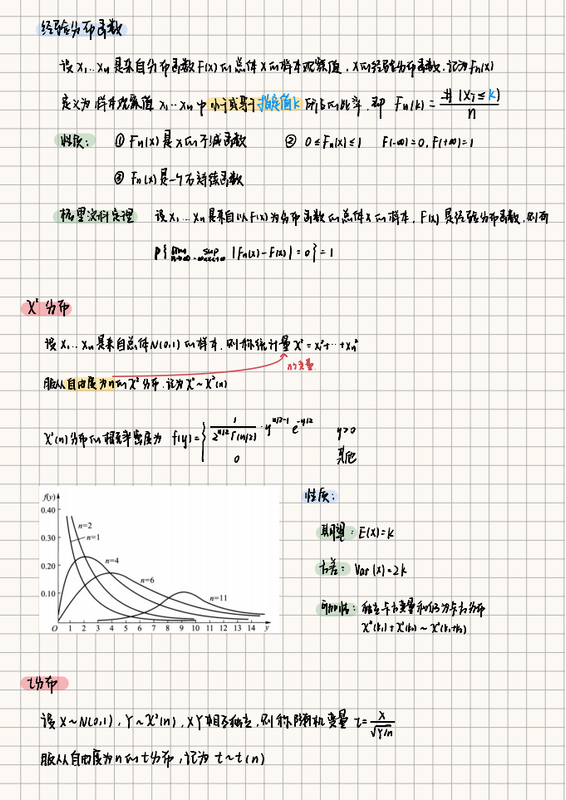 经验分布函数
设 X₁…Xₙ 是来自分布函数 F(x) 的总体 X 的样本观察值，X 的经验分布函数，记为 Fₙ(x)
定义为 样本观察值 X₁…Xₙ 中 小于或等于指定值k 所占的比率，即 Fₙ(k) = #(Xᵢ ≤ k) / n
性质： ① Fₙ(x) 是 x 的不减函数 ② 0 ≤ Fₙ(x) ≤ 1 F(-∞)=0, F(+∞)=1
③ Fₙ(x) 是一个右连续函数
格里汶科定理 设 X₁…Xₙ 是来自以 F(x) 为分布函数的总体 X 的样本，F(x) 是经验分布函数，则有
P{ lim n→∞ sup -∞<x<+∞ |Fₙ(x) - F(x)| = 0 } = 1
X² 分布
设 X₁…Xₙ 是来自总体 N(0,1) 的样本，则称统计量 X² = X₁² + … + Xₙ²
n个变量
服从自由度为n的 X² 分布，记为 X² ~ X²(n)
X²(n) 分布的概率密度为 f(y) = { 1 / (2^(n/2) Γ(n/2)) · y^(n/2-1) e^(-y/2) y>0
0 其他
f(y)
0.40
0.30
0.20
0.10
n=2
n=1
n=4
n=6
n=11
O 1 2 3 4 5 6 7 8 9 10 11 12 13 14 y
性质：
期望：E(X)=k
方差：Var(X)=2k
可加性：独立卡方变量和仍为卡方分布
X²(k₁) + X²(k₂) ~ X²(k₁+k₂)
t分布
设 X~N(0,1)，Y~X²(n)，X Y 相互独立，则称随机变量 t = X / √(Y/n)
服从自由度为 n 的 t 分布，记为 t~t(n)